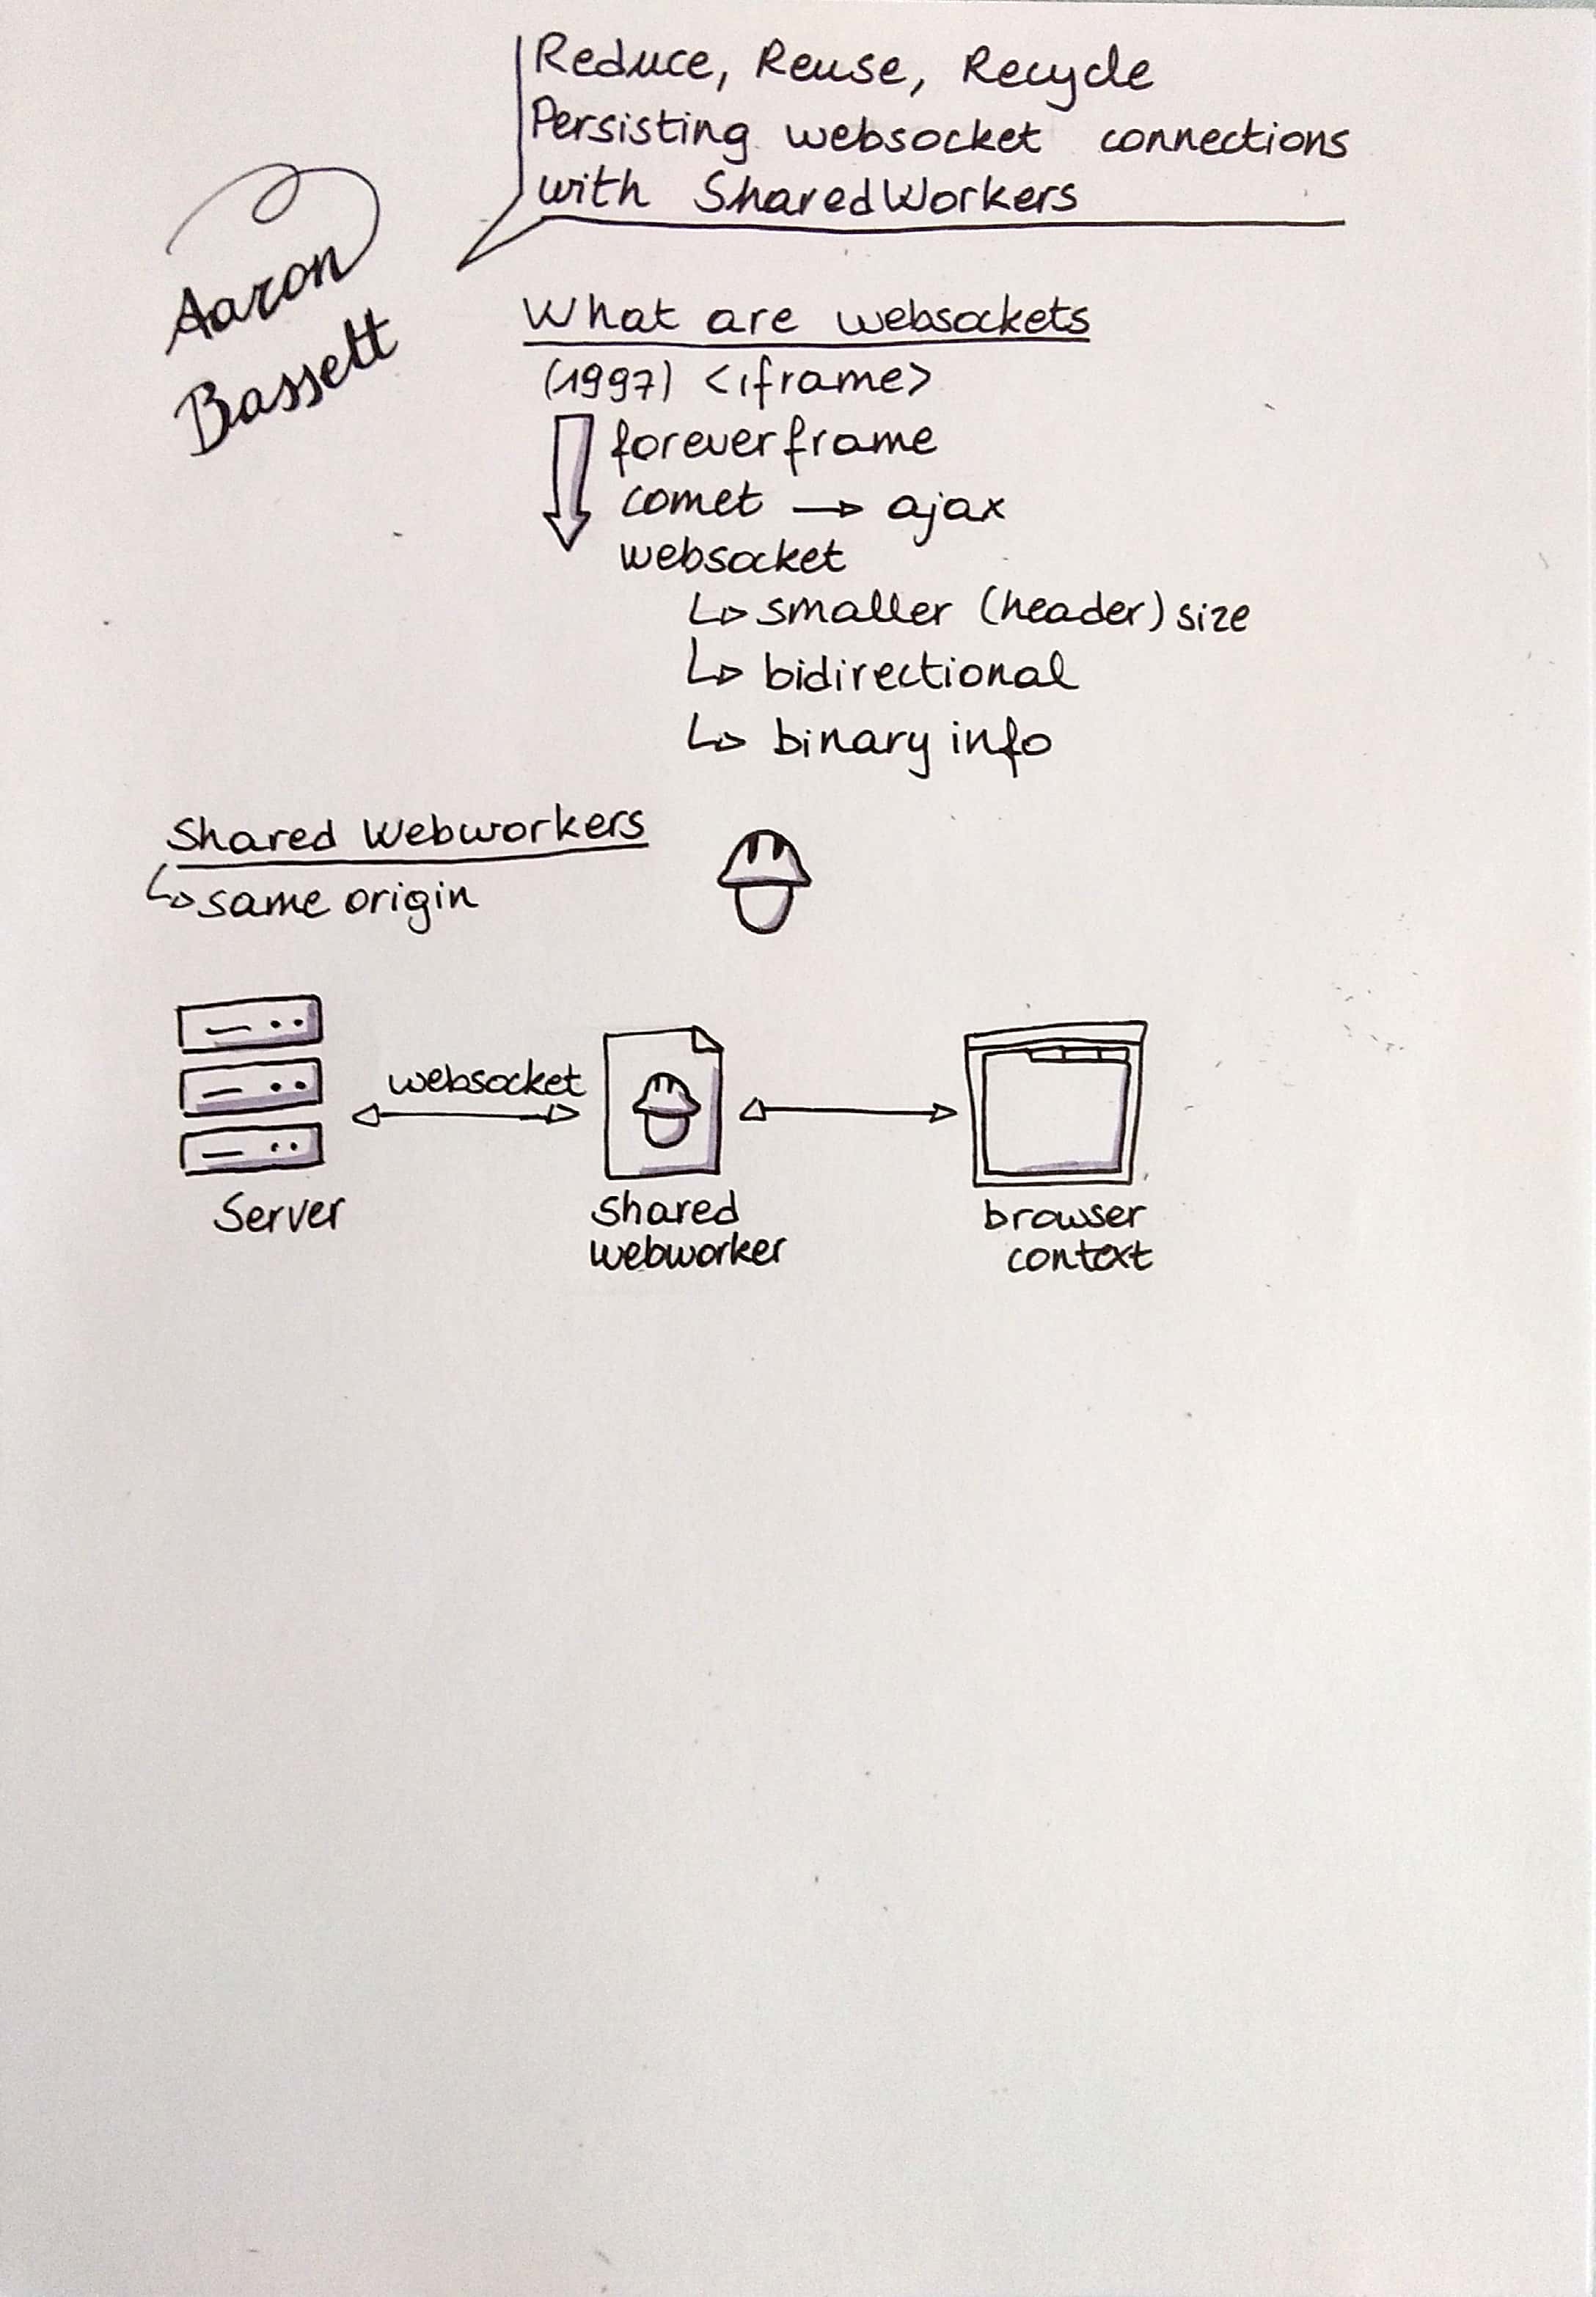 Reduce, Reuse, Recycle
Persisting websocket connections
with SharedWorkers
Aaron
Bassett
What are websockets
(1997) <iframe>
foreverframe
comet → ajax
websocket
↳ smaller (header) size
↳ bidirectional
↳ binary info
Shared Webworkers
↳ same origin
websocket
Server
shared
webworker
browser
context